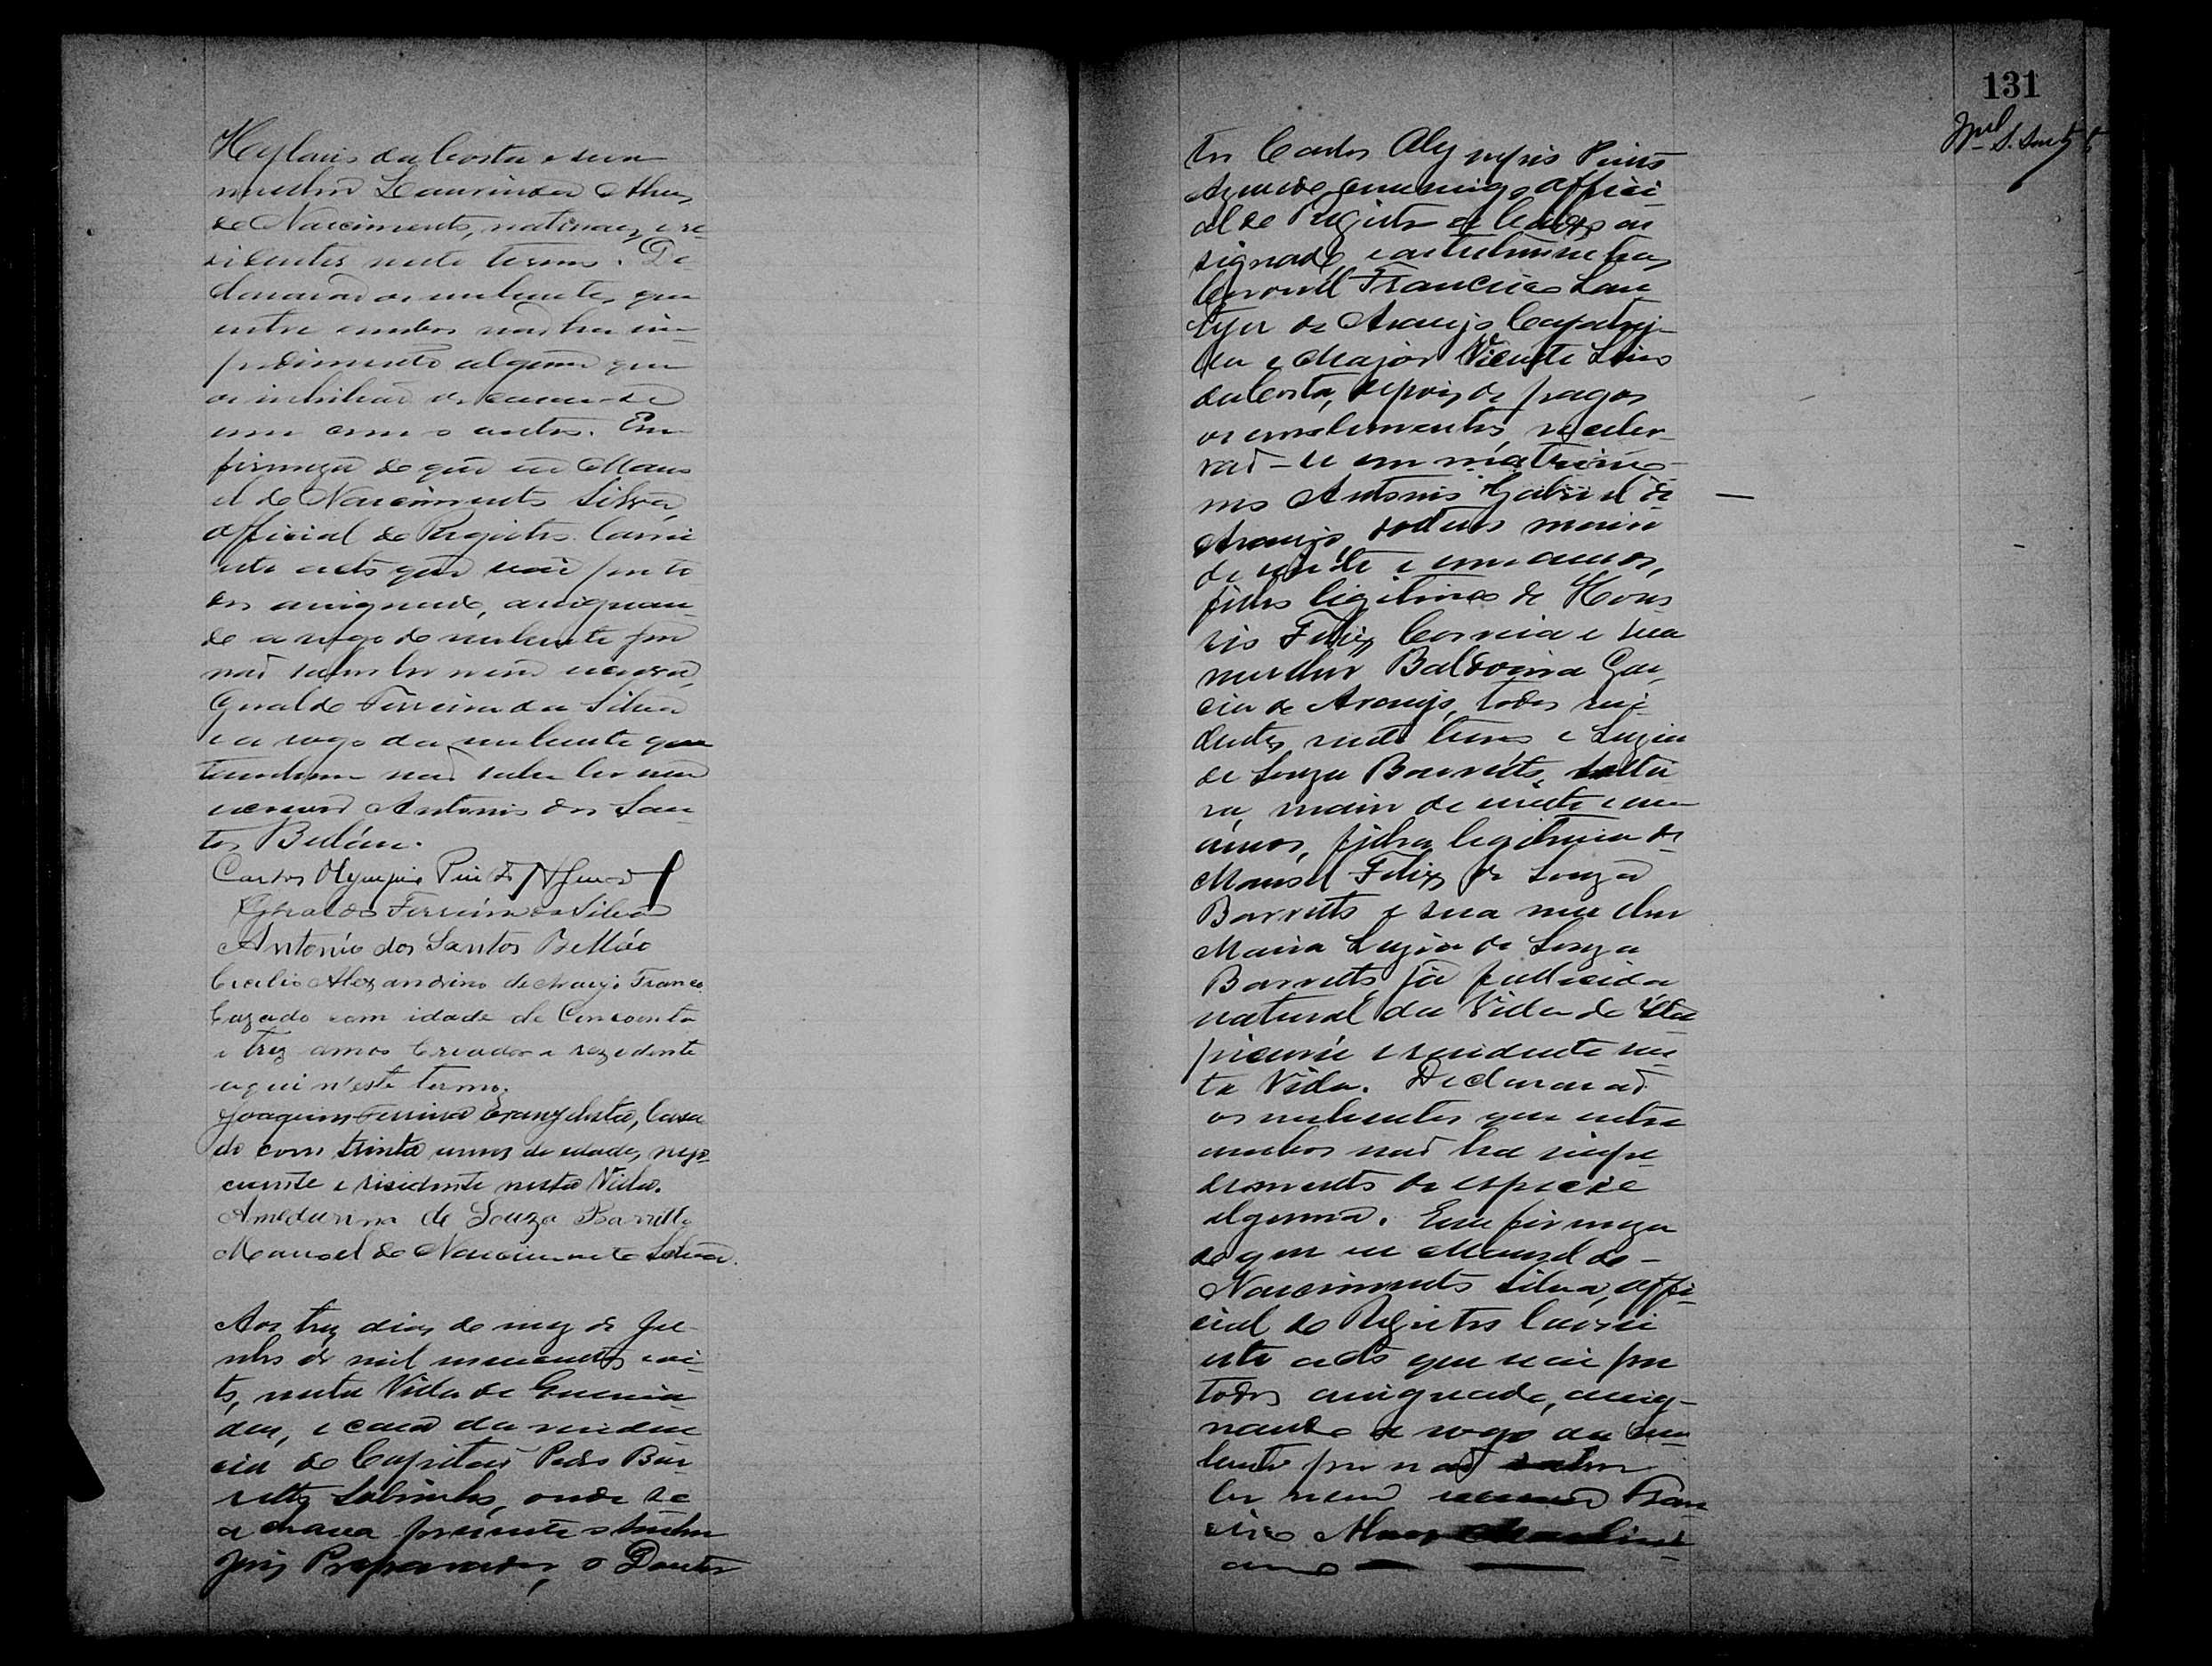 da Costa e sua
mulher Laurinda Alves
do Nascimento, naturaes e re-
sidentes neste termo. De-
clararão os nubentes, que
entre ambos não ha im-
pedimento algum que
os inhibão de casar-se
um com o outro. Em
firmeza do que eu Mano-
el do Nascimento Silva,
official do Registro lavrei
este acto que vai por to-
dos assignado, assignan-
do a rogo do nubente por
não saber ler nem escrever,
Geraldo Ferreira da Silva
e a rogo da nubente que
tambem não sabe ler nem
escrever Antonio dos San-
tos
Carlos Olympio
Geraldo Ferreira da Silva
Antonio dos Santos
Alexandrino de Araujo Franco
Cazado com idade de Cincoenta
e trez annos Creador e rezidente
aqui n'este termo.
Joaquim Ferreira Evangelista, Casa-
do com trinta annos de idade, nego-
ciante e residente nesta Villa.
de Souza Barretto
Manoel do Nascimento Silva.
Aos trez dias do mez de
de mil novecentos e oi-
to, nesta Villa de
e casa da residen-
cia do Capitão Pedro Bar-
retto Sobrinho, onde se
achava presente o
Juiz Preparador, o Doutor
131
Carlos Olympio Pinto
commigo offici-
al do Registro
signado e as testemunhas
Coronel Francisco
de Araujo
e Major Vicente
da Costa, depois de pagos
os emolumentos, receber-
rão-se em matrimo-
nio Antonio Gabriel de
Araujo, solteiro maior
de vinte e um annos,
filho legitimo de
Felix Correia e sua
mulher Balbina Gar-
cia de Araujo, todos resi-
dentes neste termo e Luzia
de Souza Barretto, soltei-
ra, maior de vinte e um
annos, filha legitima de
Manoel Felix de Souza
Barretto e sua mulher
Maria Luzia de Souza
Barretto já fallecida
natural da Villa de Ita-
picurú e residente nes-
ta Villa. Declararão
os nubentes que entre
ambos não ha impe-
dimento de especie
alguma. Em firmeza
do que eu Manoel do
Nascimento Silva, offi-
cial do Registro lavrei
este acto que vai por
todos assignado, assig-
nando a rogo da nu-
bente por não saber
ler nem escrever Fran-
cisco Alves